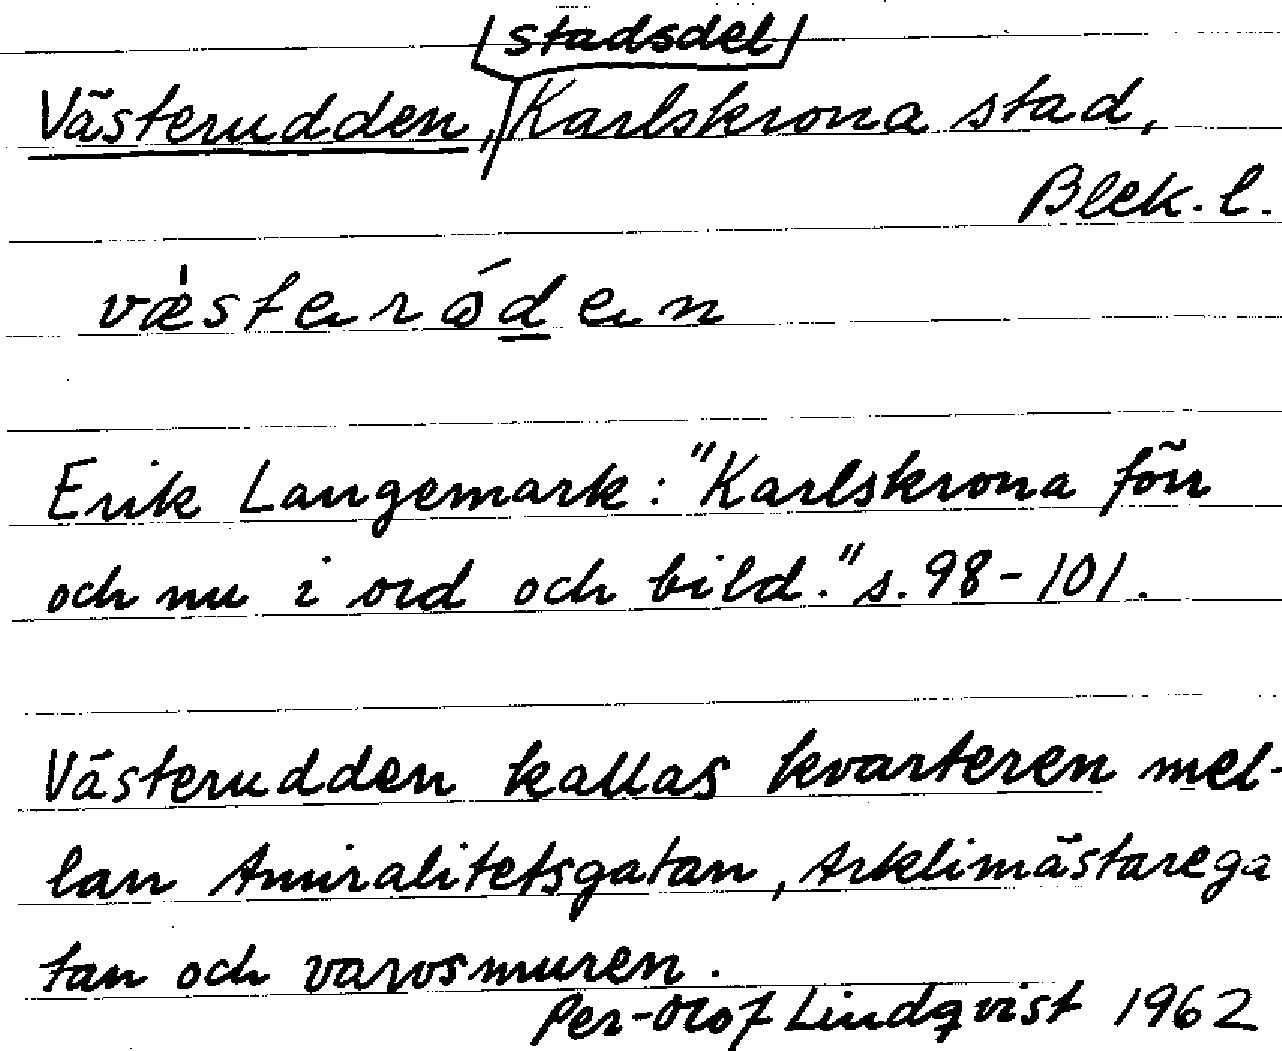 stadsdel
Västerudden, Karlskrona stad,
Blek. l.
Erik Langemark: "Karlskrona förr
och nu i ord och bild." s. 98-101.
Västerudden kallas kvarteren mel-
lan Amiralitetsgatan, Arklimästarega
tan och varvsmuren.
Per-Olof Lindqvist 1962